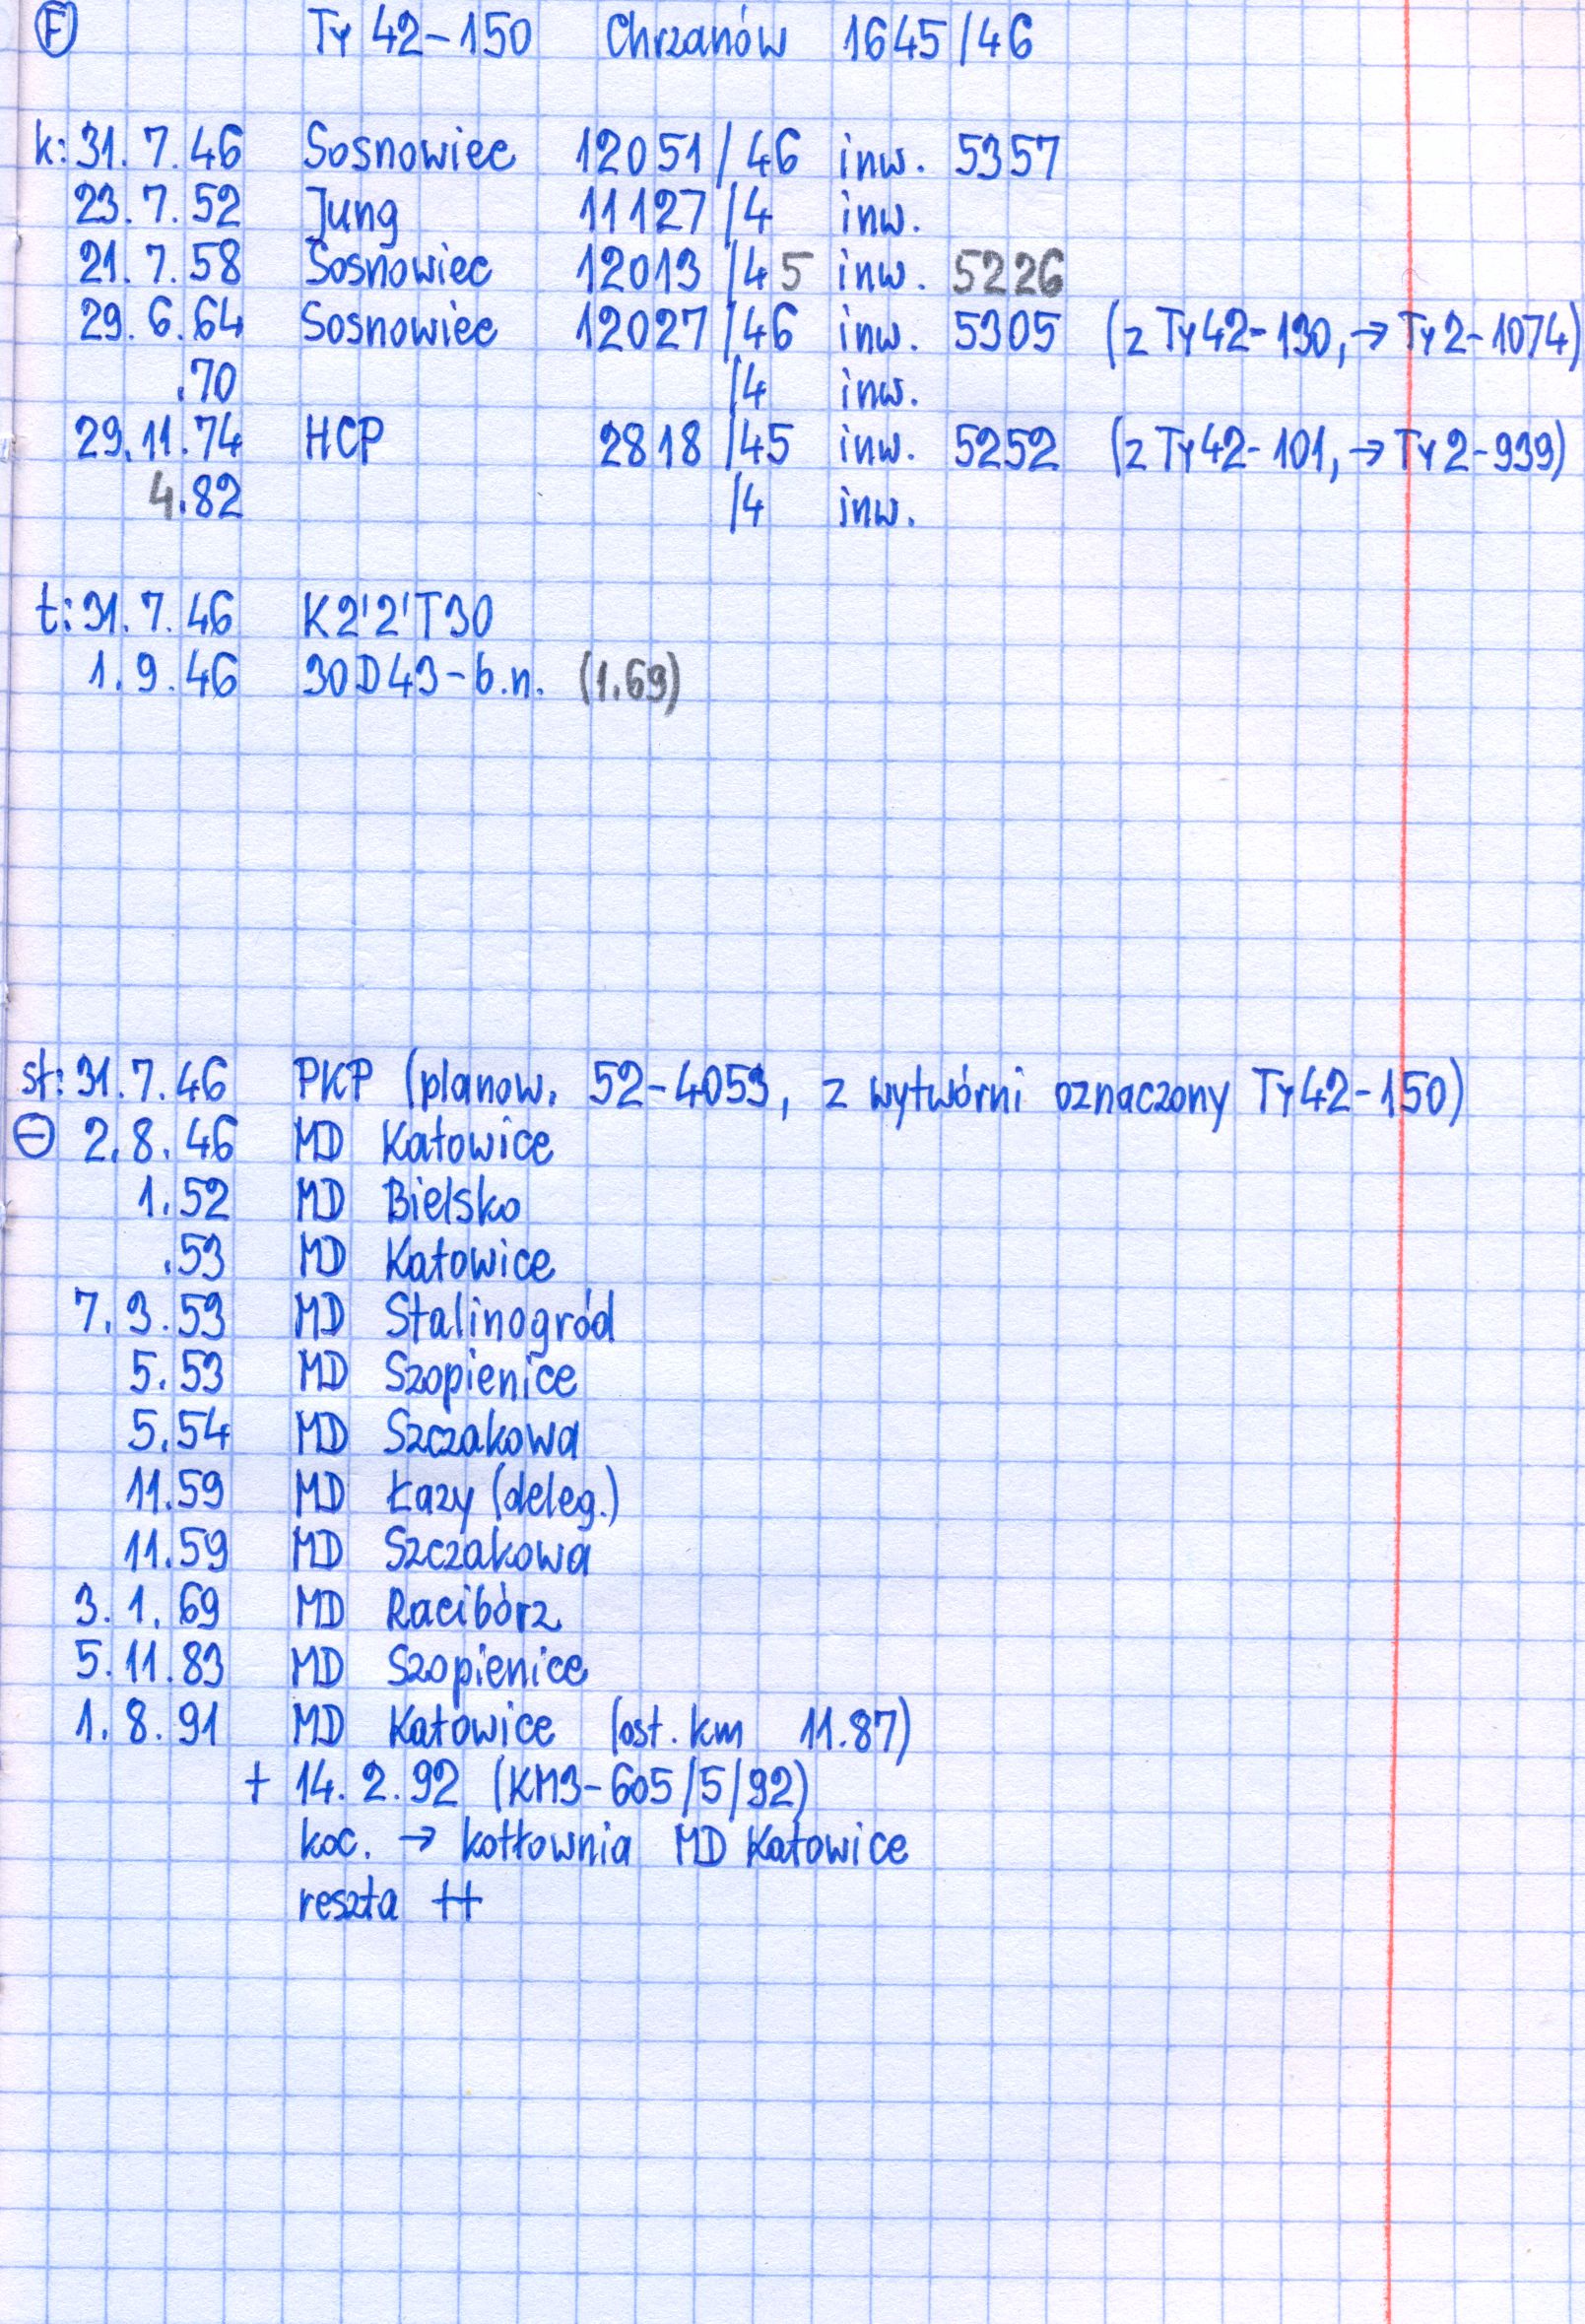 F Ty 42-150 Chrzanów 1645/46
k: 31.7.46 Sosnowiec 12051/46 inw. 5357
23.7.52 Jung 11127/4 inw.
21.7.58 Sosnowiec 12013/45 inw. 5226
29.6.64 Sosnowiec 12027/46 inw. 5305 (z Ty42-130, → Ty2-1074)
.70 /4 inw.
29.11.74 HCP 2818/45 inw. 5252 (z Ty42-101, → Ty2-939)
4.82 /4 inw.
t: 31.7.46 K2'2'T30
1.9.46 30D43-b.n. (1.69)
st: 31.7.46 PKP (planow. 52-4053, z wytwórni oznaczony Ty42-150)
⊖ 2.8.46 MD Katowice
1.52 MD Bielsko
.53 MD Katowice
7.3.53 MD Stalinogród
5.53 MD Szopienice
5.54 MD Szczakowa
11.59 MD Łazy (deleg.)
11.59 MD Szczakowa
3.1.69 MD Racibórz
5.11.83 MD Szopienice
1.8.91 MD Katowice (ost. km 11.87)
+ 14.2.92 (KM3-605/5/92)
koc. → kotłownia MD Katowice
reszta ++